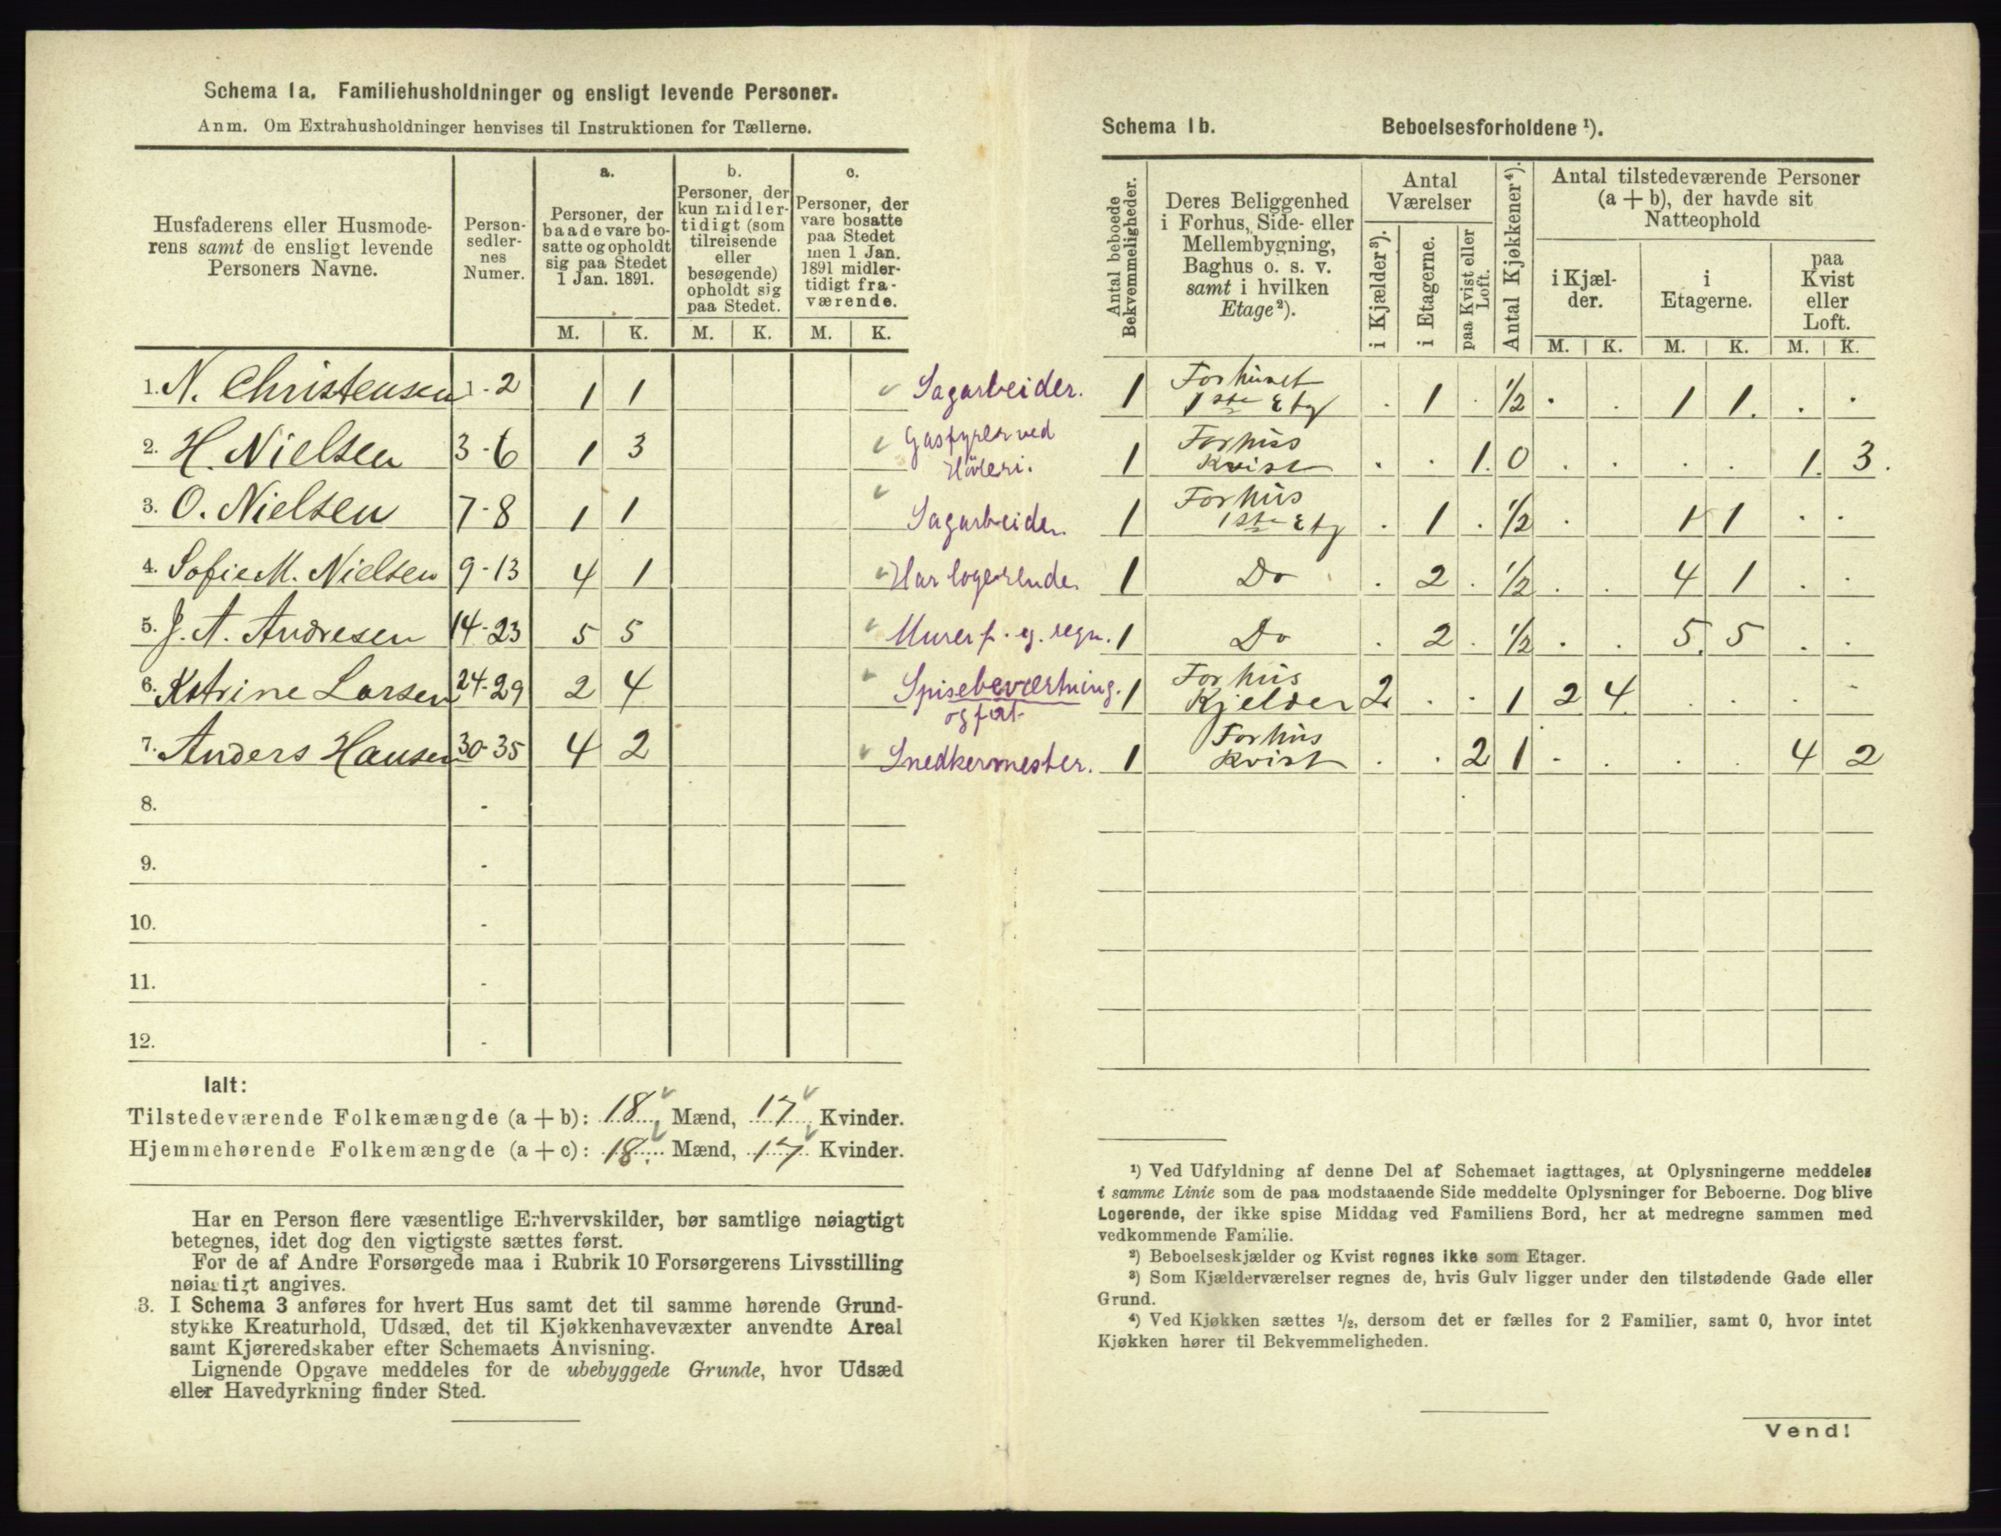 Schema 1a. Familiehusholdninger og ensligt levende Personer.
Anm. Om Extrahusholdninger henvises til Instruktionen for Tællerne.
Husfaderens eller Husmode-
rens samt de ensligt levende
Personers Navne.
Person-
sedler-
nes
Numer.
a.
Personer, der
baade vare bo-
satte og opholdt
sig paa Stedet
1 Jan. 1891.
b.
Personer, der
kun midler-
tidigt (som
tilreisende
eller
besøgende)
opholdt sig
paa Stedet.
c.
Personer, der
vare bosatte
paa Stedet
men 1 Jan.
1891 midler-
tidigt fra-
værende.
M. K. M. K. M. K.
1. N. Christensen 1-2 1 1 Sagarbeider.
2. H. Nielsen 3-6 1 3 Gasfyrer ved
Höveri.
3. O. Nielsen 7-8 1 1 Sagarbeider.
4. Sofie M. Nielsen 9-13 4 1 Har logerende.
5. J. A. Andresen 14-23 5 5 Murer f. eg. regn.
6. Katrine Larsen 24-29 2 4 Spisebeværtning.
7. Anders Hansen 30-35 4 2 Snedkermester.
8. -
9. -
10. -
11. -
12. -
Ialt:
Tilstedeværende Folkemængde (a + b): 18 Mænd, 17 Kvinder.
Hjemmehørende Folkemængde (a + c): 18 Mænd, 17 Kvinder.
Har en Person flere væsentlige Erhvervskilder, bør samtlige nøiagtigt
betegnes, idet dog den vigtigste sættes først.
For de af Andre Forsørgede maa i Rubrik 10 Forsørgerens Livsstilling
nøiagtigt angives.
3. I Schema 3 anføres for hvert Hus samt det til samme hørende Grund-
stykke Kreaturhold, Udsæd, det til Kjøkkenhavevæxter anvendte Areal
samt Kjøreredskaber efter Schemaets Anvisning.
Lignende Opgave meddeles for de ubebyggede Grunde, hvor Udsæd
eller Havedyrkning finder Sted.
Schema 1b. Beboelsesforholdene ¹).
Antal beboede
Bekvemmeligheder.
Deres Beliggenhed
i Forhus, Side- eller
Mellembygning,
Baghus o. s. v.
samt i hvilken
Etage²).
Antal
Værelser
i Kjælder³).
i Etagerne.
paa Kvist eller
Loft.
Antal Kjøkkener⁴).
Antal tilstedeværende Personer
(a + b), der havde sit
Natteophold
i Kjæl-
der.
i
Etagerne.
paa
Kvist
eller
Loft.
M. K. M. K. M. K.
1 Forhuset
1ste Etg . 1 . ½ . . 1 1 . .
1 Forhus
Kvist . . 1 0 . . . . 1 3
1 Forhus
1ste Etg . 1 . ½ . 1 1 . .
1 Do . 2 . ½ . 4 1 . .
1 Do . 2 . ½ . . 5 5 . .
1 Forhus
Kjelder 2 . . 1 2 4 . . . .
1 Forhus
Kvist . . 2 1 . . . . 4 2
¹) Ved Udfyldning af denne Del af Schemaet iagttages, at Oplysningerne meddeles
i samme Linie som de paa modstaaende Side meddelte Oplysninger for Beboerne. Dog blive
Logerende, der ikke spise Middag ved Familiens Bord, her at medregne sammen med
vedkommende Familie.
²) Beboelseskjælder og Kvist regnes ikke som Etager.
³) Som Kjælderværelser regnes de, hvis Gulv ligger under den tilstødende Gade eller
Grund.
⁴) Ved Kjøkken sættes ½, dersom det er fælles for 2 Familier, samt 0, hvor intet
Kjøkken hører til Bekvemmeligheden.
Vend!